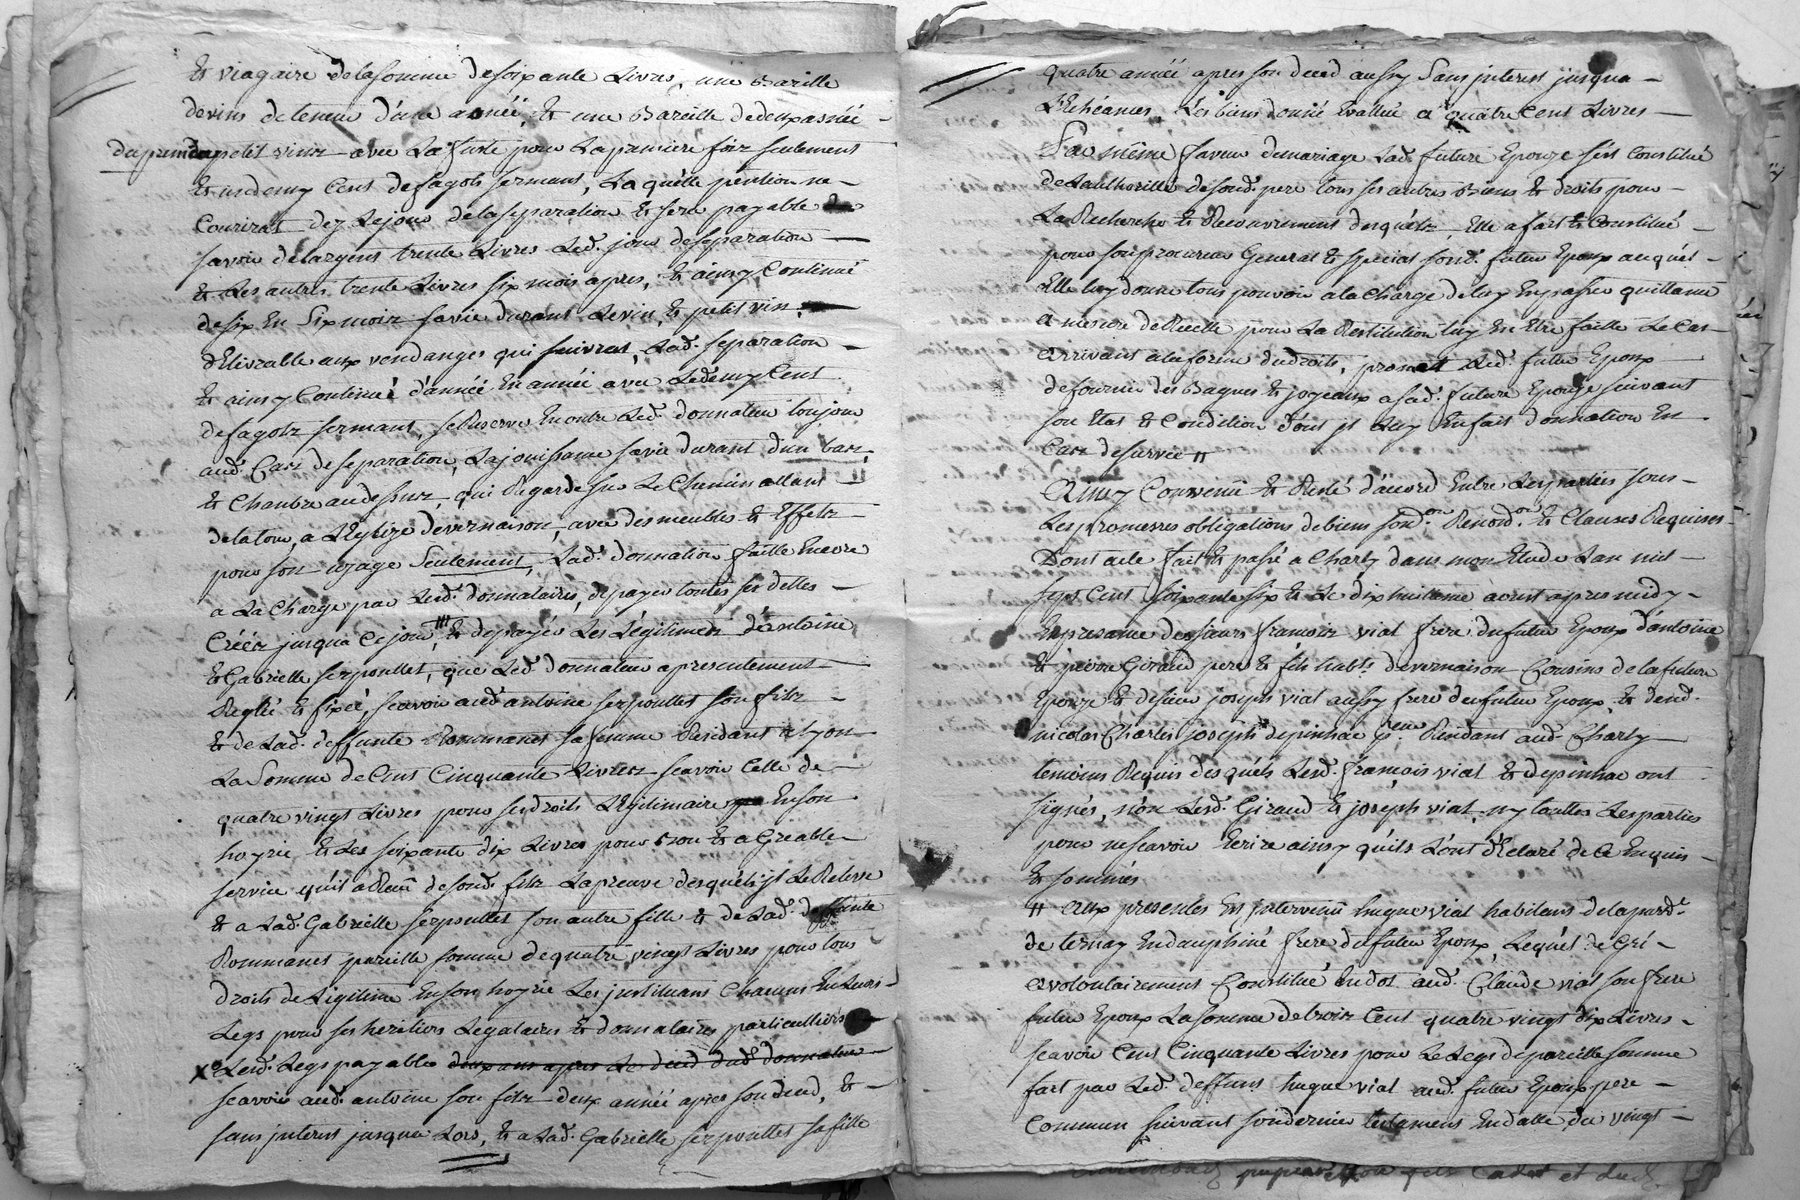 Et viagaire de la somme de soixante Livres, une Barille
de vin de teneur d'une asnéé, & une Bareille de deux asnéé
du premier petit vin avec La fuste pour La premiere fois seulement
& un demy Cent de fagots serment, Laquelle pention ne
Courirat dez Le jour de la separation & sera payable
savoir de largent trente Livres Led. jour de separation
& Les autres trente Livres six mois apres, & ainsy Continué
de six En Six mois sa vie durant Le vin, & petit vin
délivrable aux vendanges qui suivrat Lad. separation
& ainsy Continué d'annéé En annéé avec Le demy Cent
de fagotz serment, se Reserve En outre Led. donnateur toujour
aud. Cas de separation, La jouissance sa vie durant d'un bas
& Chambre au dessus, qui Regarde sur Le Chemin allant
de la tour, a L'Eglize de vernaison, avec des meubles & Effets
pour son usage Seulement, Lad. donnation faitte Encore
a La Charge par Lesd. donnataires, de payer touttes ses dettes
Créés jusqua Ce jour, & de payer Les Légitimes d'antoine
& Gabrielle serpoullet, que Led. donnateur a presentement
Reglé & fixéé, scavoir aud. antoine serpoullet son fils
& de Lad. deffunte Rommanet sa femme Residant a Lyon
La Somme de Cent Cinquante Livres scavoir Celle de
quatre vingt Livres pour ses droits Légitimaire En son
hoyrie & Les soixante dix Livres pour Bon & agreable
service qu'il a Recü de sond. fils La preuve desquels il Le Releve
& a Lad. Gabrielle serpoullet son autre fille & de Lad. deffunte
Rommanet pareille somme de quatre vingt Livres pour tous
droits de Légitime En son hoyrie Les jnstituant Chacuns En Leurs
Legs pour ses heritiers Légataires & donnataires particulliers
X Lesd. Legs payable deux ans apres Le deced dud. donnateur
scavoir aud. antoine son fils deux annéé apres son deced, &
sans jnterest jusqua Lors, & a Lad. Gabrielle serpoullet sa fille
quatre annéé apres son deced aussy Sans jnterest jusqua
L'Echéance, Les biens donné Evallué a quatre Cent Livres
Par même faveur de mariage Lad. future Epouze s'est Constitué
de L'authorité de sond. pere tous ses autres Biens & droits pour
La Recherche & Recouvrement desquels, Elle a fait & Constitué
pour son procureur General & special sond. futur Epoux auquel
Elle luy donne tous pouvoir a la Charge de luy En passer quittance
a mesure de Recette pour La Restitution luy En Etre faitte Le Cas
arrivant a la forme du droits, promet Led. futur Epoux
de fournir des Bagues & joyeaux a sad. future Epouze suivant
son Etat & Condition d'ont il Luy En fait donnation En
Cas de survie //
Ainsy Convenü & Resté d'accord Entre Les parties sous
Les promesses obligations de biens soud.on Renond.on & Clauses Requises
Dont acte fait & passé a Charly dans mon Etude Lan mil
sept Cent soixante six & Le dix huitieme aoust apres midy
En presance des sieurs francois vial frere du futur Epoux d'antoine
& Giraud pere & fils habts. de vernaison Cousins de la future
Epouze & de sieur joseph vial aussy frere du futur Epoux, & de sieur
nicolas Charles joseph depinhac Residant aud. Charly
temoins Requis desquels Lesd. francois vial & depinhac ont
signés, n'on Lesd. Giraud & joseph vial ny touttes Les parties
pour ne scavoir Ecrire ainsy quils L'ont d'Eclaré de Ce Enquis
& sommés
// Aux presentes Est jntervenü hugue vial habitant de la parr.e
de ternay En dauphiné frere du futur Epoux, Lequel de Gré
a volontairement Constitué En dot aud. Claude vial son frere
futur Epoux La somme de trois Cent quatre vingt dix Livres
scavoir Cent Cinquante Livres pour Le Legs de pareille somme
fait par Led. deffunt hugue vial aud. futur Epoux pere
Commun suivant son dernier testament En datte du vingt